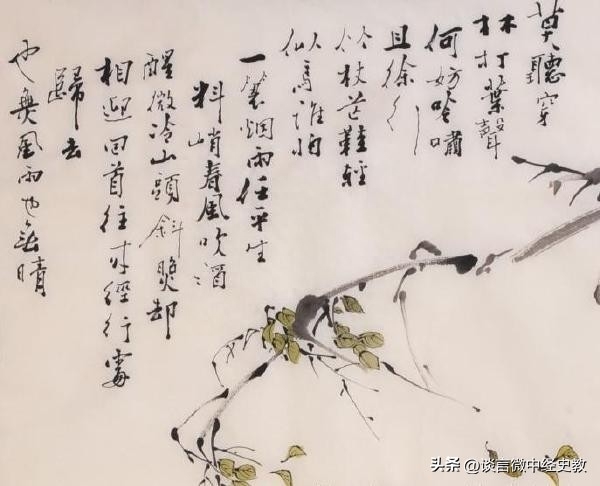 莫聽穿
林打葉聲
何妨吟嘯
且徐行
竹杖芒鞋輕
似馬誰怕
一蓑烟雨任平生
料峭春風吹酒
醒微冷山頭斜照却
相迎回首往來經行處
歸去
也無風雨也無晴
头条 @谈言微中经史教